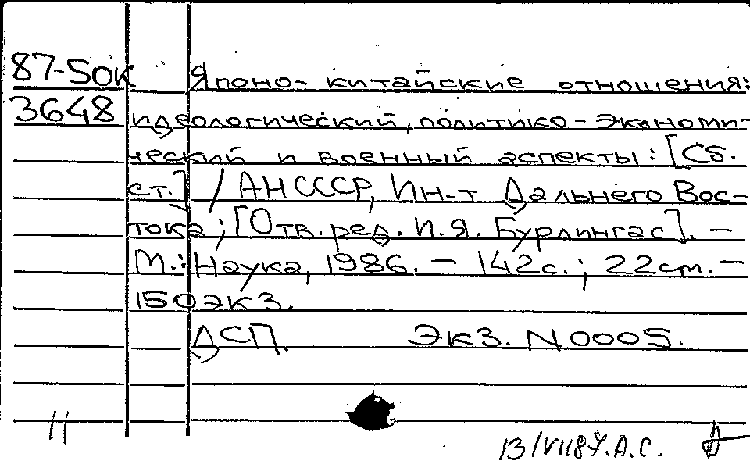 87-5ОК Японо-китайские отношения:
3648 идеологический, политико-экономи-
ческий и военный аспекты: [Сб.
ст.] / АН СССР, Ин-т Дальнего Вос-
тока; [Отв. ред. И.Я. Бурлингас]. –
М.: Наука, 1986. – 142с.; 22см. –
150экз.
ДСП. Экз. N0005.
11